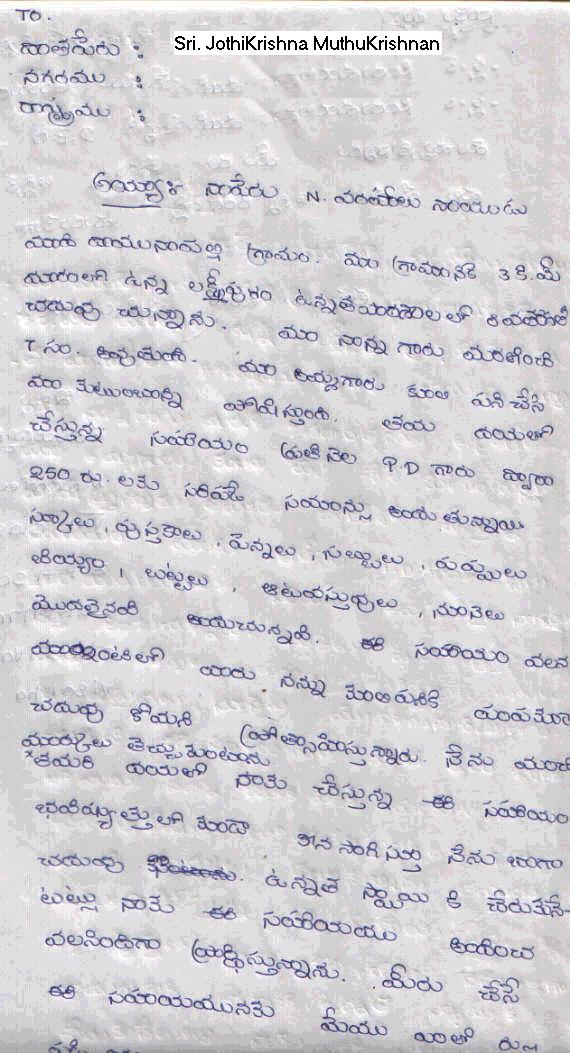 TO.
దాతపేరు : Sri. JothiKrishna MuthuKrishnan
నగరము :
రాష్ట్రము :
అయ్యా:- నాపేరు N. వరహాలు నాయుడు
మాది రామునాయుడు గ్రామం. మా గ్రామానికి 3 కి.మీ
దూరంలో ఉన్న లక్ష్మీపురం ఉన్నత పాఠశాలలో 8 వ తరగతి
చదువు చున్నాను. మా నాన్న గారు మరణించి
7 సం. అవుతుంది. మా అమ్మగారు కూలి పని చేసి
మా కుటుంబాన్ని పోషిస్తుంది. తమ దయతో
చేస్తున్న సహాయం ప్రతి నెల P.D గారు ద్వారా
250 రు. లకు సరిపడే అందుతున్నాయి
పుస్తకాలు, పెన్నులు, సబ్బులు, పప్పులు
బియ్యం, బట్టలు, ఆటవస్తువులు, నూనెలు
మొదలైనవి అందుచున్నవి. ఈ సహాయం వలన
మా ఇంటిలో వారు నన్ను పనికి పంపకుండా
చదువు కోమని ప్రోత్సాహిస్తున్నారు. నేను మంచి
మార్కులు తెచ్చుకుంటాను
దయతో నాకు చేస్తున్న ఈ సహాయం
భవిష్యత్తులో కూడా కొనసాగిస్తూ నేను బాగా
చదువు ఉన్నత స్థాయి కి చేరుకునే-
టట్లు నాకు ఈ సహాయము అందించ
వలసిందిగా ప్రార్థిస్తున్నాను. మీరు చేసే
ఈ సహాయమునకు మేము ఎంతో రుణ